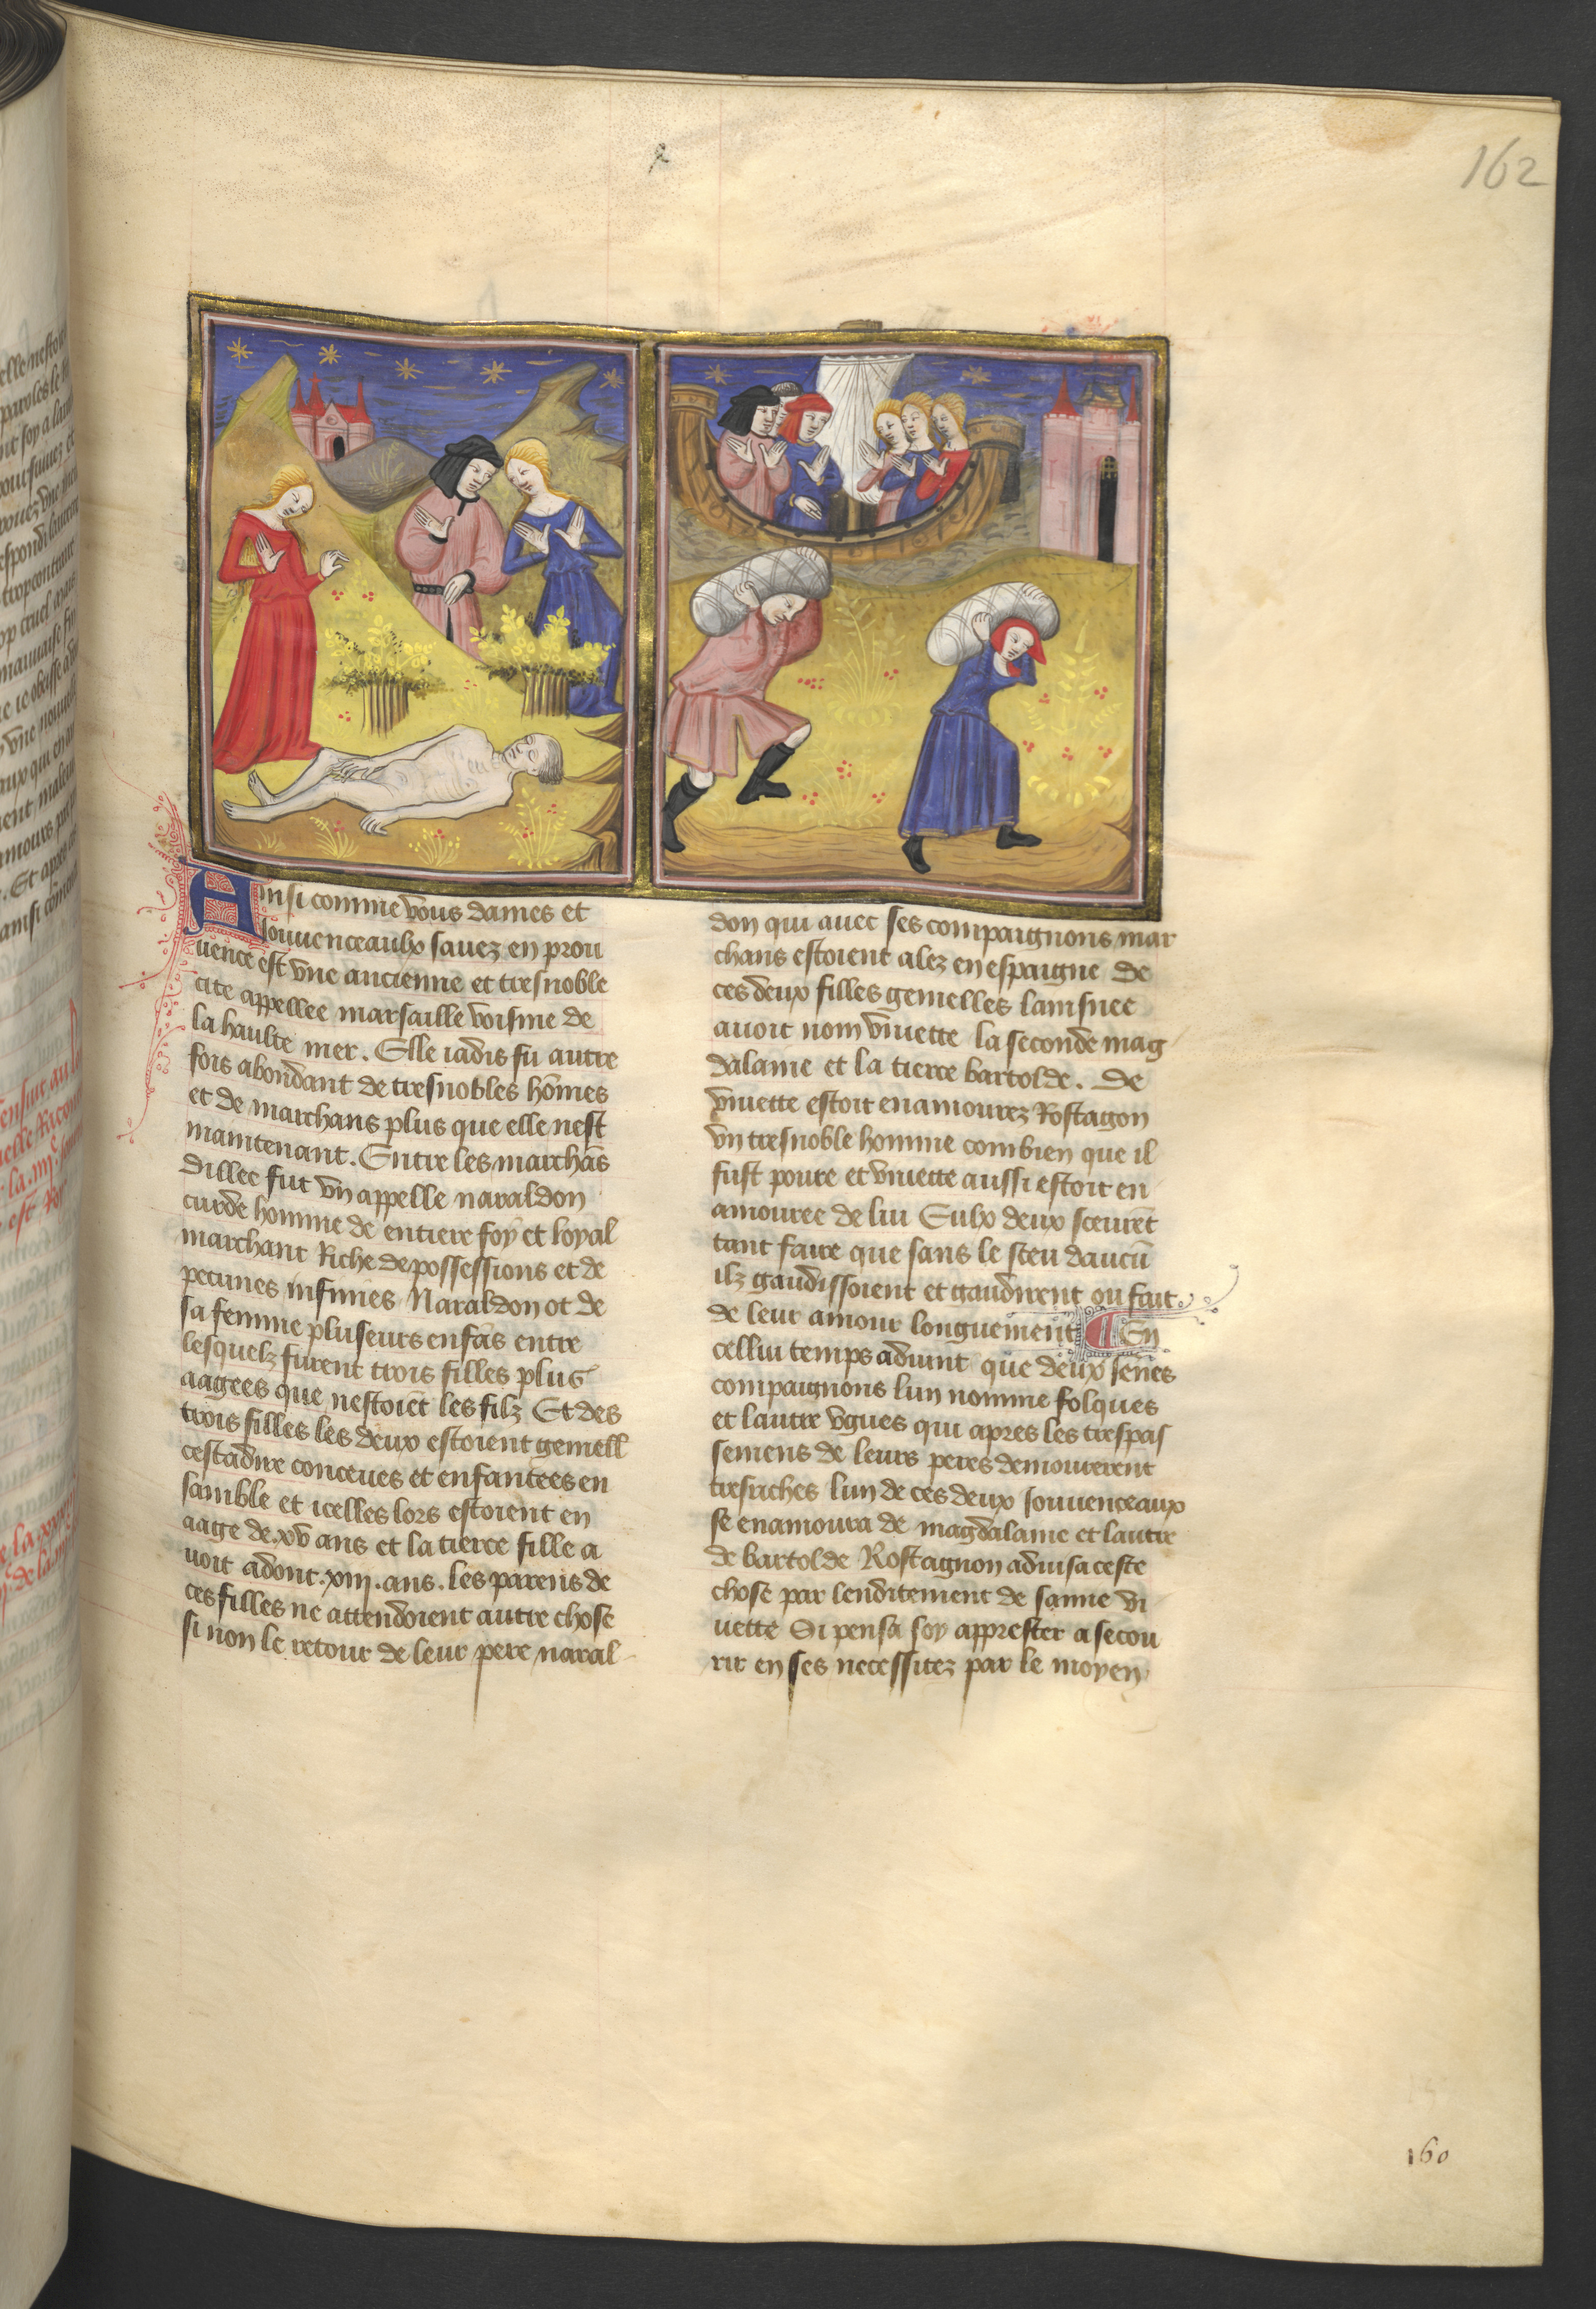 162
Ainsi comme vous dames et
Jouuenceaulx sauez en prou
uence est vne ancienne et tresnoble
cite appellee marsaille voisine de
la haulte mer. Elle iadis fu autre
fois abondant de tresnobles hōmes
et de marchans plus que elle nest
maintenant. Entre les marchās
dillec fut vn appelle naraldon
curde homme de entiere foy et loyal
marchant Riche de possessions et de
pecunes infinies Naraldon ot de
sa femme pluseurs enfās entre
lesquelz furent trois filles plus
aagees que nestoiēt les filz Et des
trois filles les deux estoient gemell
cestadire conceues et enfantees en
samble et icelles lors estoient en
aage de .xv ans et la tierce fille a
uoit adont .xiiij. ans. les parens de
ces filles ne attendoient autre chose
si non le retour de leur pere naral
don qui auec ses compaignons mar
chans estoient alez en espaigne de
ces deux filles gemelles lainsnee
auoit nom viuette la seconde mag
dalaine et la tierce bartolde. De
viuette estoit enamourez Rostagon
vn tresnoble homme combien que il
fust poure et viuette aussi estoit en
amouree de lui Eulx deux sceurēt
tant faire que sans le sceu daucū
ilz gaudissoient et gaudirent ou fait
de leur amour longuement En
cellui temps aduint que deux ieūes
compaignons lun nomme folques
et lautre vgues qui apres les trespas
semens de leurs peres demourerent
tresriches lun de ces deux Jouuenceaux
se enamoura de magdalaine et lautre
de bartolde Rostagnon aduisa ceste
chose par lenditement de samie vi
uette Si pensa soy apprester a secou
rir en ses necessitez par le moyen
160